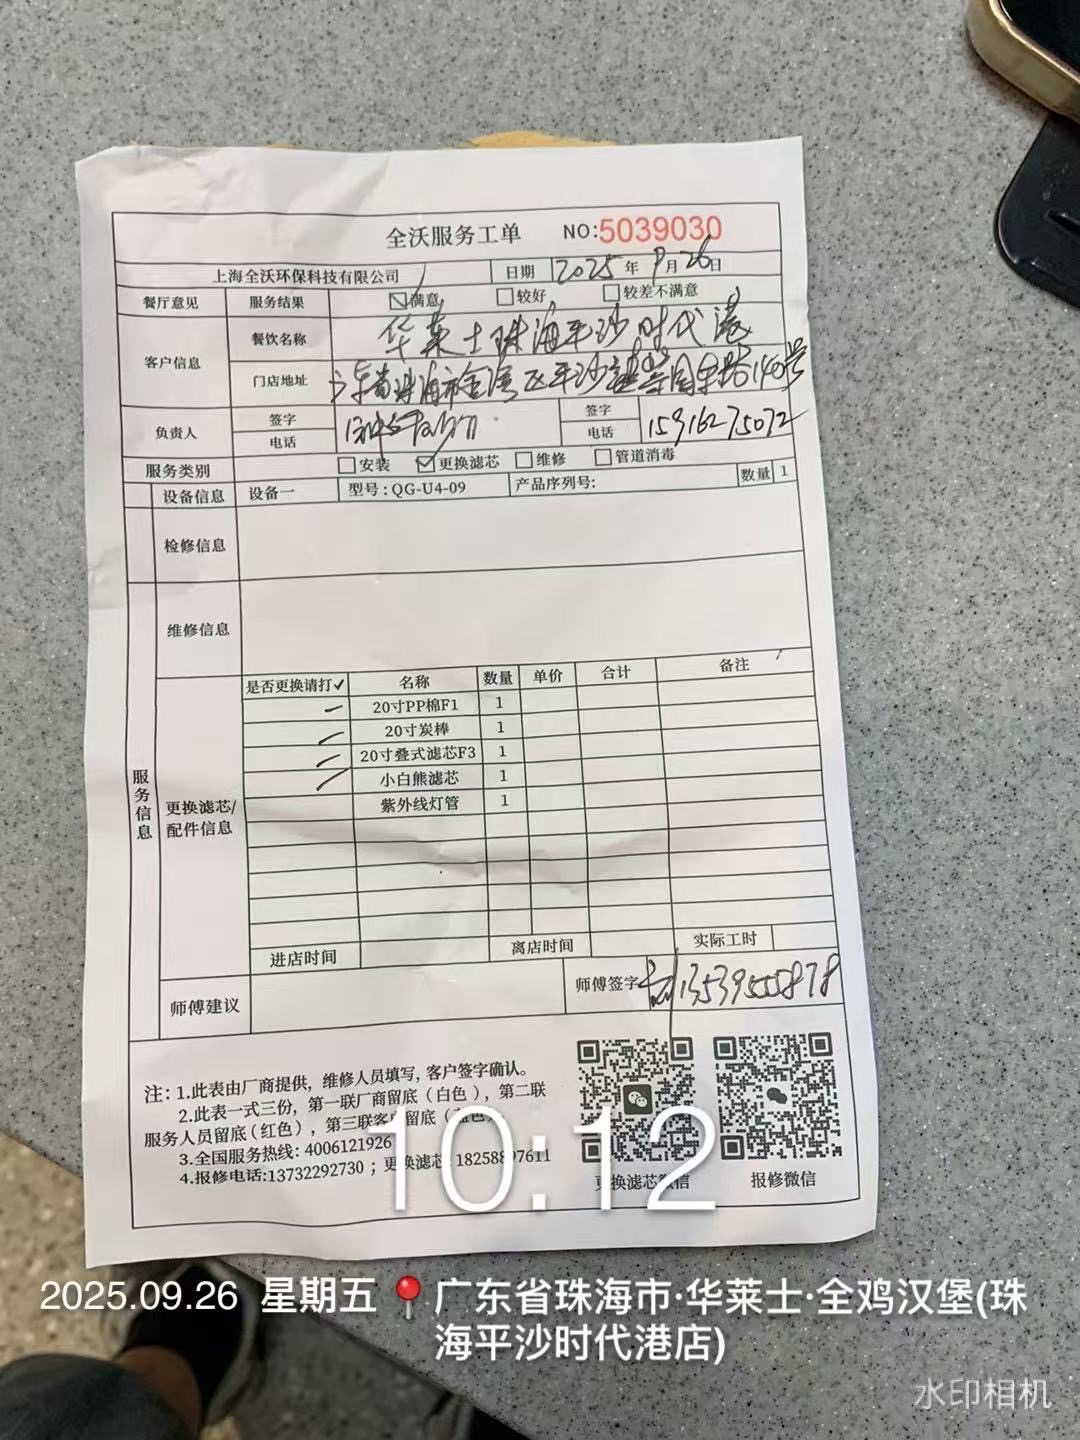 全沃服务工单 NO:5039030
上海全沃环保科技有限公司 日期 2025年9月26日
餐厅意见 服务结果 ☑满意 □较好 □较差不满意
客户信息 餐饮名称 华莱士珠海平沙时代港
门店地址 广东省珠海市金湾区平沙 140号
负责人 签字 签字
电话 电话 15916275072
服务类别 □安装 ☑更换滤芯 □维修 □管道消毒
设备信息 设备一 型号:QG-U4-09 产品序列号: 数量 1
检修信息
维修信息
服务信息
更换滤芯/配件信息
是否更换请打✓ 名称 数量 单价 合计 备注
20寸PP棉F1 1
20寸炭棒 1
20寸叠式滤芯F3 1
小白熊滤芯 1
紫外线灯管 1
进店时间 离店时间 实际工时
师傅建议 师傅签字 13539555878
注:1.此表由厂商提供,维修人员填写,客户签字确认。
2.此表一式三份,第一联厂商留底(白色),第二联
服务人员留底(红色),第三联客户留底(蓝色)
3.全国服务热线:4006121926
4.报修电话:13732292730;更换滤芯:18258897611
更换滤芯微信 报修微信
10:12
2025.09.26 星期五 广东省珠海市·华莱士·全鸡汉堡(珠
海平沙时代港店)
水印相机